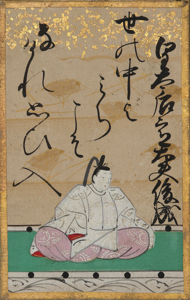 皇太后宮大夫俊成
世の中よ
みちこそ
なけれ思ひ入